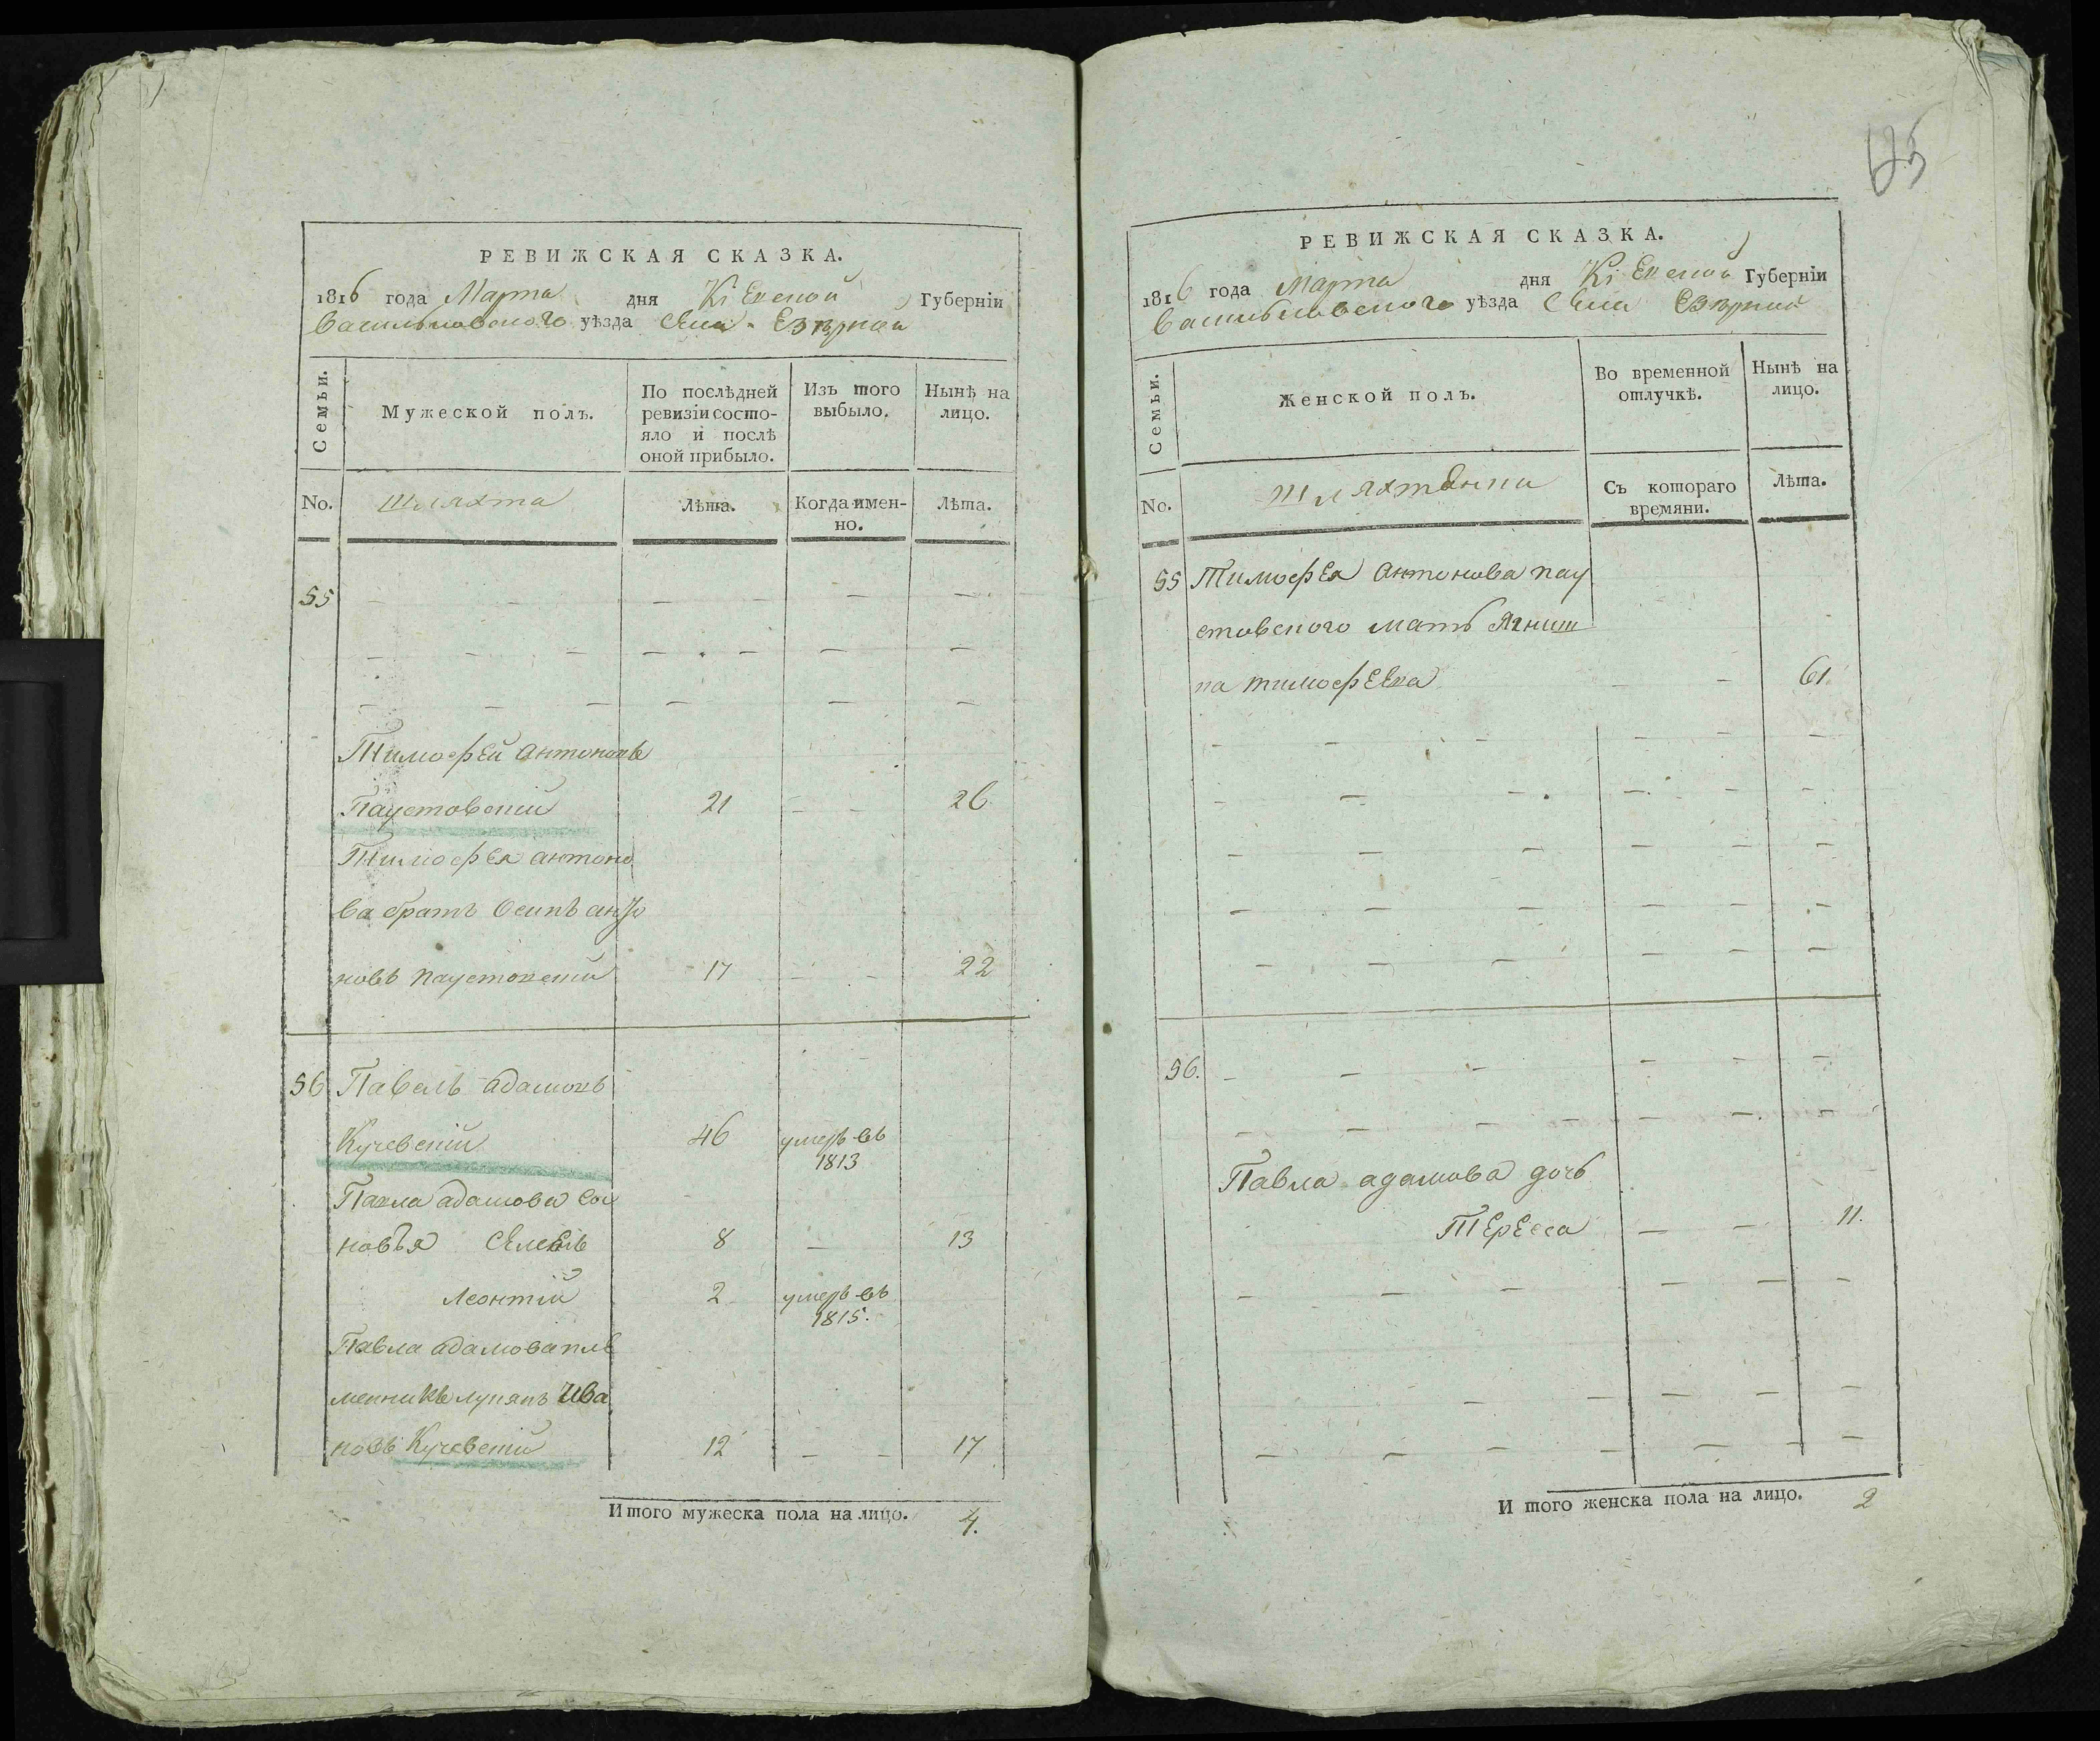 РЕВИЖСКАЯ СКАЗКА.
1816 года Марта дня Кіевской Губерніи
Васильковского уѣзда Села Езѣрной
Семьи.
Мужеской полъ.
По послѣдней ревизіи состояло и послѣ оной прибыло.
Изъ того выбыло.
Нынѣ на лицо.
No.
Шляхта
Лѣта.
Когда имен-но.
Лѣта.
55
Тимофей Антоновъ
Паустовскій 21 26
Тимофея Антоно
ва братъ Осипъ анто
новъ Паустовскій 17 22
56 Павелъ Адамовъ
Кучевскій 46 умеръ въ 1813
Павла Адамова сы
новья Семенъ 8 13
Леонтій 2 умеръ въ 1815.
Павла Адамова пле
менникъ Лукянъ Ива
новъ Кучевскій 12 17
Итого мужеска пола на лицо. 4.
РЕВИЖСКАЯ СКАЗКА.
1816 года Марта дня Кіевской Губерніи
Васильковского уѣзда Села Езѣрной
Семьи.
Женской полъ.
Во временной отлучкѣ.
Нынѣ на лицо.
No.
Шляхтянки
Съ котораго времяни.
Лѣта.
55 Тимофея Антонова Пау
стовского мать Ягниш
ка Тимофеева 61
56.
Павла адамова дочь
Терееса 11.
И того женска пола на лицо. 2